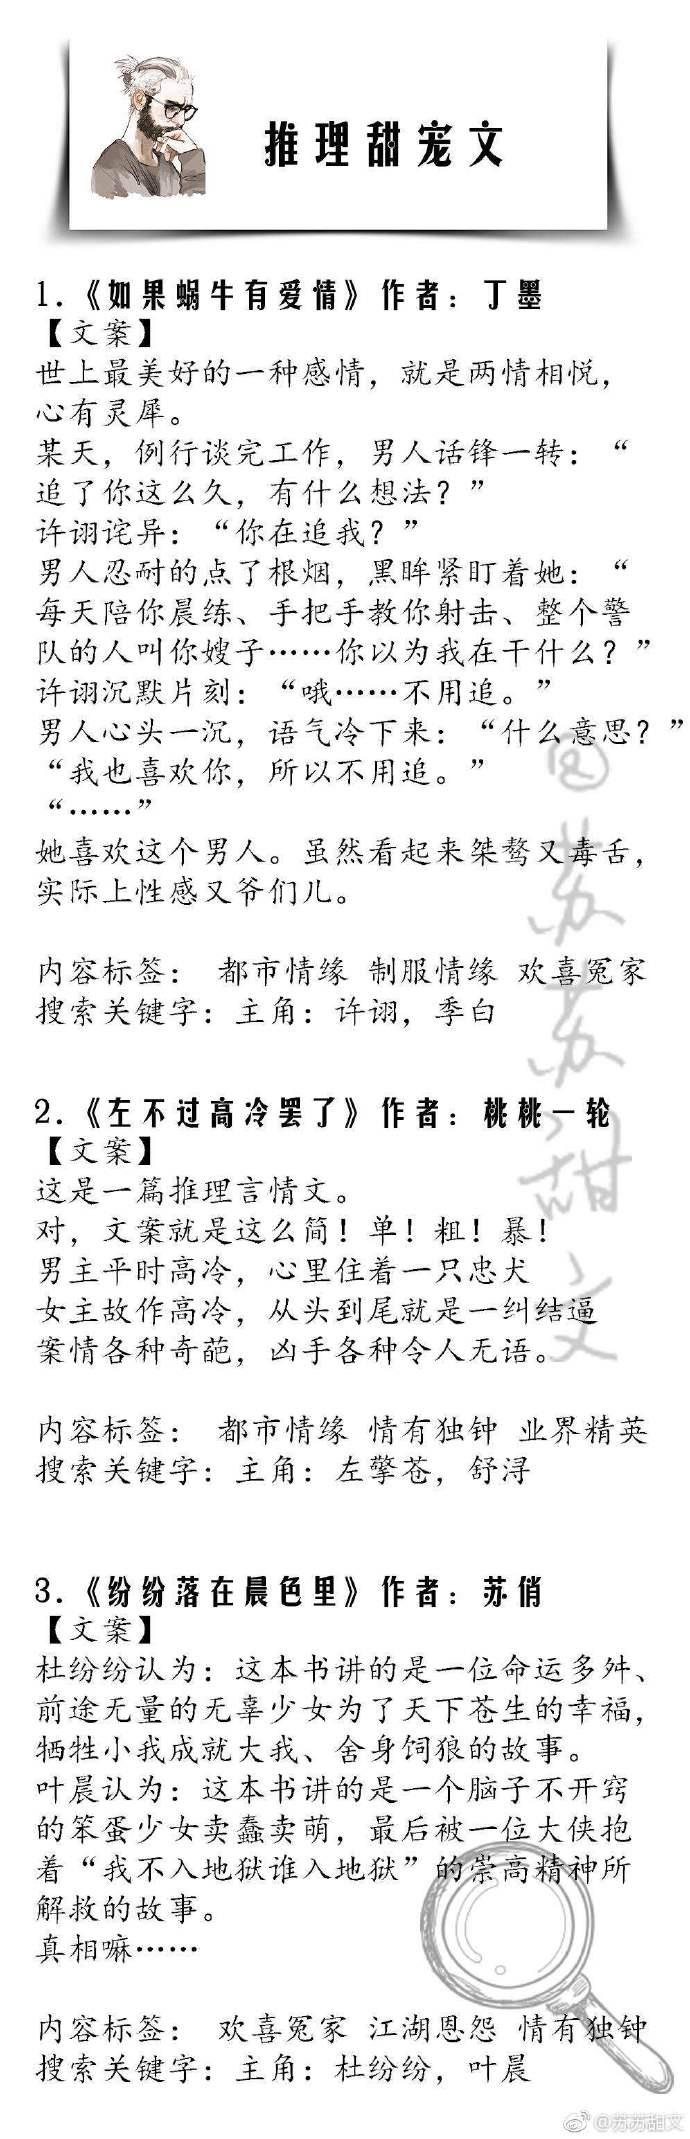 推理甜宠文
1.《如果蜗牛有爱情》作者：丁墨
【文案】
世上最美好的一种感情，就是两情相悦，
心有灵犀。
某天，例行谈完工作，男人话锋一转：“
追了你这么久，有什么想法？”
许诩诧异：“你在追我？”
男人忍耐的点了根烟，黑眸紧盯着她：“
每天陪你晨练、手把手教你射击、整个警
队的人叫你嫂子……你以为我在干什么？”
许诩沉默片刻：“哦……不用追。”
男人心头一沉，语气冷下来：“什么意思？”
“我也喜欢你，所以不用追。”
“……”
她喜欢这个男人。虽然看起来桀骜又毒舌，
实际上性感又爷们儿。
内容标签： 都市情缘 制服情缘 欢喜冤家
搜索关键字：主角：许诩，季白
2.《左不过高冷罢了》作者：桃桃一轮
【文案】
这是一篇推理言情文。
对，文案就是这么简！单！粗！暴！
男主平时高冷，心里住着一只忠犬
女主故作高冷，从头到尾就是一纠结逼
案情各种奇葩，凶手各种令人无语。
内容标签： 都市情缘 情有独钟 业界精英
搜索关键字：主角：左擎苍，舒浔
3.《纷纷落在晨色里》作者：苏俏
【文案】
杜纷纷认为：这本书讲的是一位命运多舛、
前途无量的无辜少女为了天下苍生的幸福，
牺牲小我成就大我、舍身饲狼的故事。
叶晨认为：这本书讲的是一个脑子不开窍
的笨蛋少女卖蠢卖萌，最后被一位大侠抱
着“我不入地狱谁入地狱”的崇高精神所
解救的故事。
真相嘛……
内容标签： 欢喜冤家 江湖恩怨 情有独钟
搜索关键字：主角：杜纷纷，叶晨
@苏苏甜文
@苏苏甜文